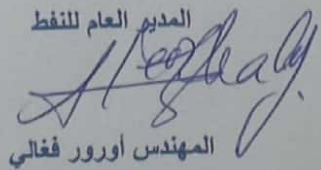 المديو العام للنفط
المهندس أورور فغالي